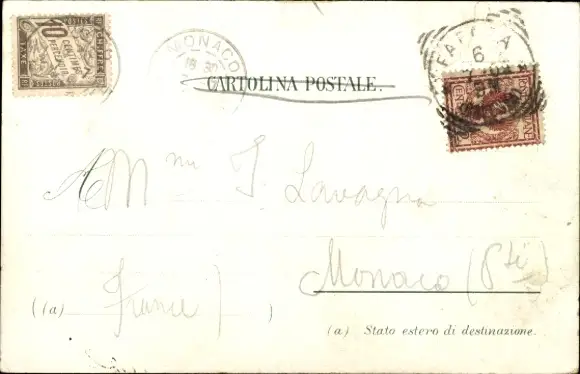 10
CENTIMES
A PERCEVOIR
MONACO
CARTOLINA POSTALE.
6
A M
J. Lavagna
Monaco (Pté)
((a) France )
(a) Stato estero di destinazione.